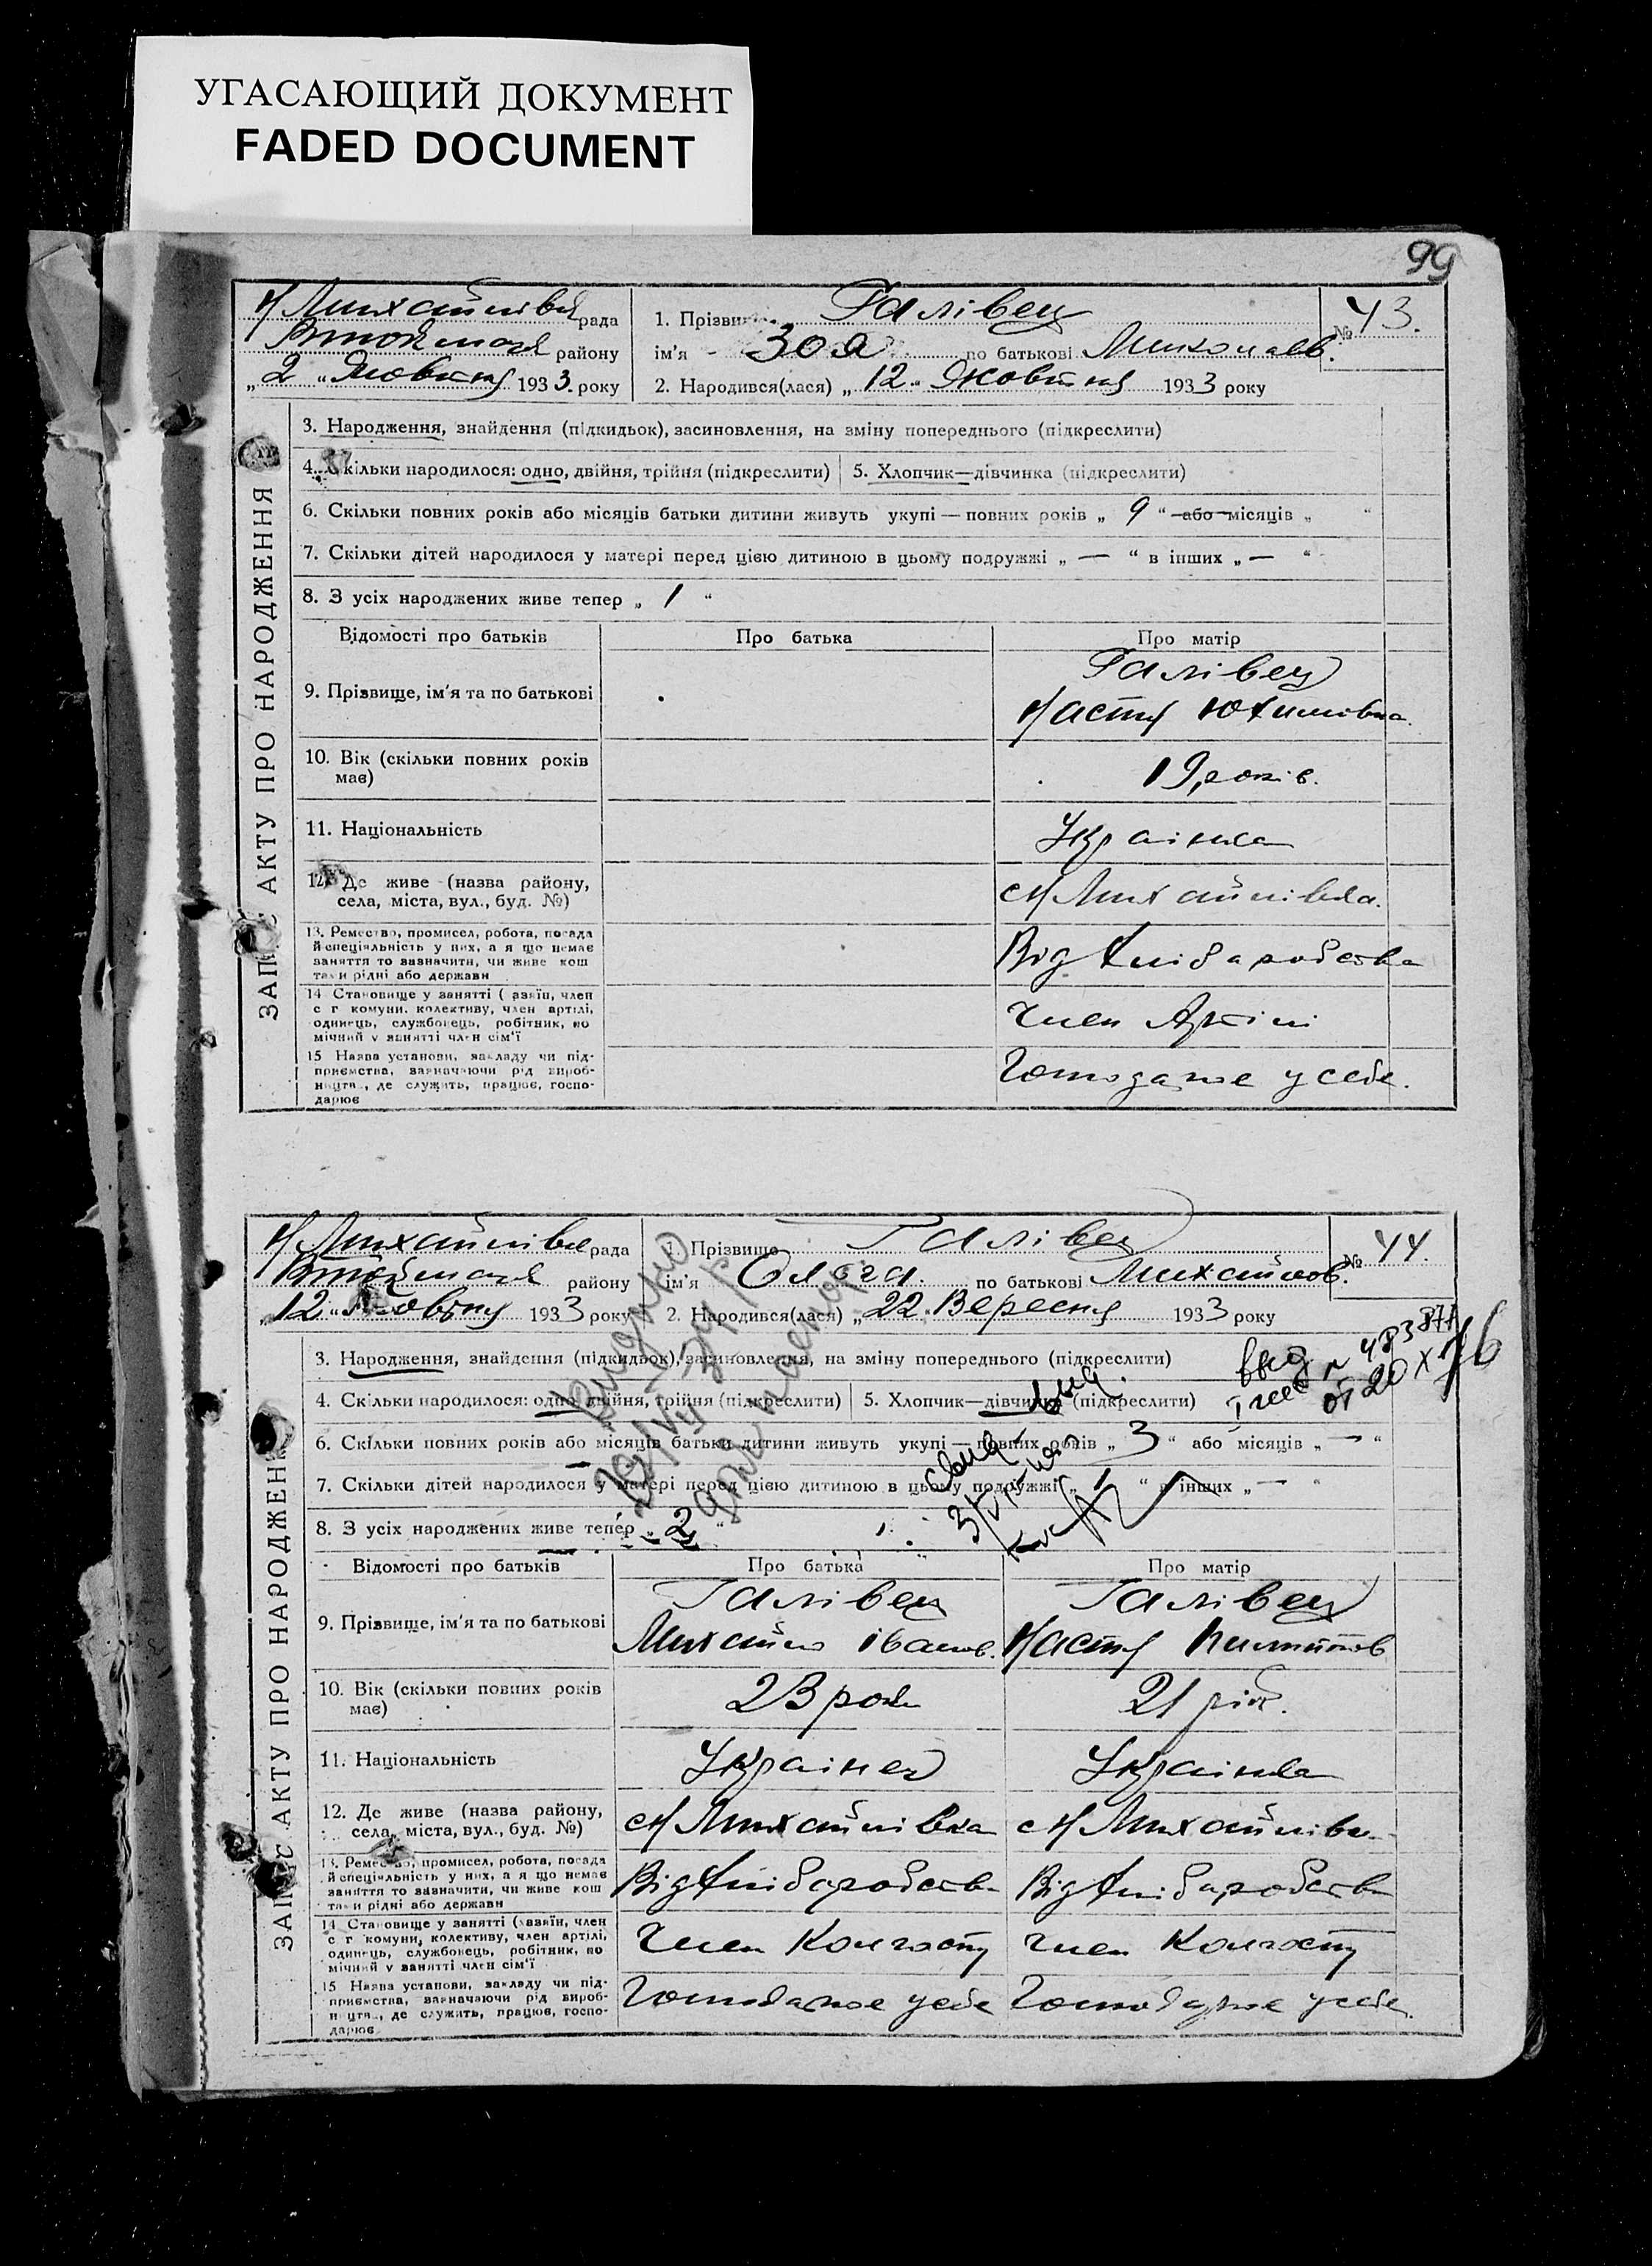 УГАСАЮЩИЙ ДОКУМЕНТ
FADED DOCUMENT
99
Н Михайлівська рада
району
„ 2 “ Жовтня 1933 року
1. Прізвище Галівец
ім'я Зоя по батькові Миколаєв.
2. Народився(лася) „ 12 “ Жовтня 1933 року
№ 43.
ЗАПИС АКТУ ПРО НАРОДЖЕННЯ
3. Народження, знайдення (підкидьок), засиновлення, на зміну попереднього (підкреслити)
4. Скільки народилося: одно, двійня, трійня (підкреслити) 5. Хлопчик—дівчинка (підкреслити)
6. Скільки повних років або місяців батьки дитини живуть укупі — повних років „ 9 “ або місяців „ “
7. Скільки дітей народилося у матері перед цією дитиною в цьому подружжі „ — “ в інших „ — “
8. З усіх народжених живе тепер „ 1 “
Відомості про батьків Про батька Про матір
9. Прізвище, ім'я та по батькові
Галівец
Настя Юхимівна.
10. Вік (скільки повних років має)
19 років.
11. Національність
Украінка
12. Де живе (назва району,
села, міста, вул., буд. №)
с Н Михайлівка.
13. Ремество, промисел, робота, посада
й спеціяльність у них, а я що немає
заняття то зазначити, чи живе кош
тами рідні або держави
Від Хліборобства
14 Становище у занятті (хазяїн, член
с г комуни, колективу, член артілі,
одинець, службовець, робітник, по
мічний у занятті член сім'ї
Член Артілі
15 Назва установи, закладу чи під-
приємства, зазначаючи рід вироб-
ництва, де служить, працює, госпо-
дарює
Господарює у себе.
Н Михайлівка рада
району
„ 12 “ Жовтня 1933 року
1. Прізвище Галівец
ім'я Ольга. по батькові Михайлов.
2. Народився(лася) „ 22 “ Вересня 1933 року
№ 44.
ЗАПИС АКТУ ПРО НАРОДЖЕННЯ
3. Народження, знайдення (підкидьок), засиновлення, на зміну попереднього (підкреслити)
4. Скільки народилося: одно, двійня, трійня (підкреслити) 5. Хлопчик—дівчинка (підкреслити)
6. Скільки повних років або місяців батьки дитини живуть укупі — повних років „ 3 “ або місяців „ — “
7. Скільки дітей народилося у матері перед цією дитиною в цьому подружжі „ 1 “ в інших „ — “
8. З усіх народжених живе тепер „ 2 “
Відомості про батьків Про батька Про матір
9. Прізвище, ім'я та по батькові
Галівец Галівец
Михайло Іванов. Настя
10. Вік (скільки повних років має)
23 роки 21 рік.
11. Національність
Украінец Украінка
12. Де живе (назва району,
села, міста, вул., буд. №)
с Н Михайлівка с Н Михайлівка
13. Ремество, промисел, робота, посада
й спеціяльність у них, а я що немає
заняття то зазначити, чи живе кош
тами рідні або держави
Від Хліборобства Від Хліборобства
14 Становище у занятті (хазяїн, член
с г комуни, колективу, член артілі,
одинець, службовець, робітник, по
мічний у занятті член сім'ї
Член Колгоспу Член Колгоспу
15 Назва установи, закладу чи під-
приємства, зазначаючи рід вироб-
ництва, де служить, працює, госпо-
дарює
Господарює у себе Господарює у себе.